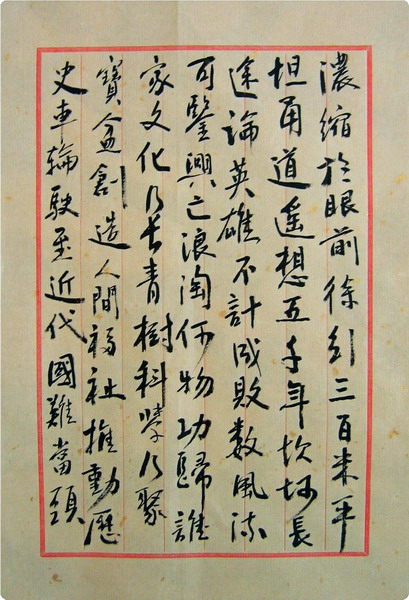 濃縮於眼前徐引三百米平
坦甬道遙想五千年坎坷長
途論英雄不計成敗數風流
可鑒興亡浪淘何物功歸誰
家文化乃長青樹科學乃聚
寶盆創造人間福祉推動歷
史車輪駛至近代國難當頭